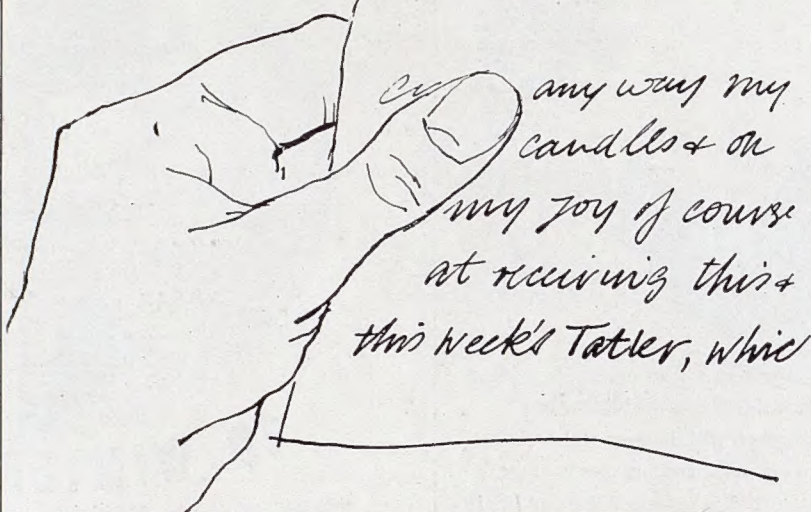 any way my
candles & on
my joy of course
at receiving this &
this week's Tatler, whic